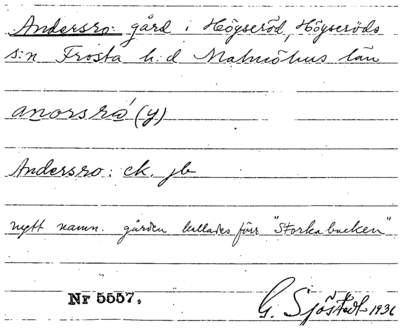 Andersro: gård i Högseröd, Högseröds
s:n Frosta h:d Malmöhus län
anorsrá (y)
Andersro: ek. jb
nytt namn. gården kallades förr "Storkabacken"
Nr 5557,
G. Sjöstedt 1936